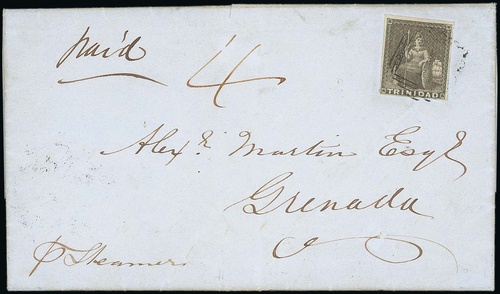 paid
4
TRINIDAD
Alexr. Martin Esqr
Grenada
p Steamer